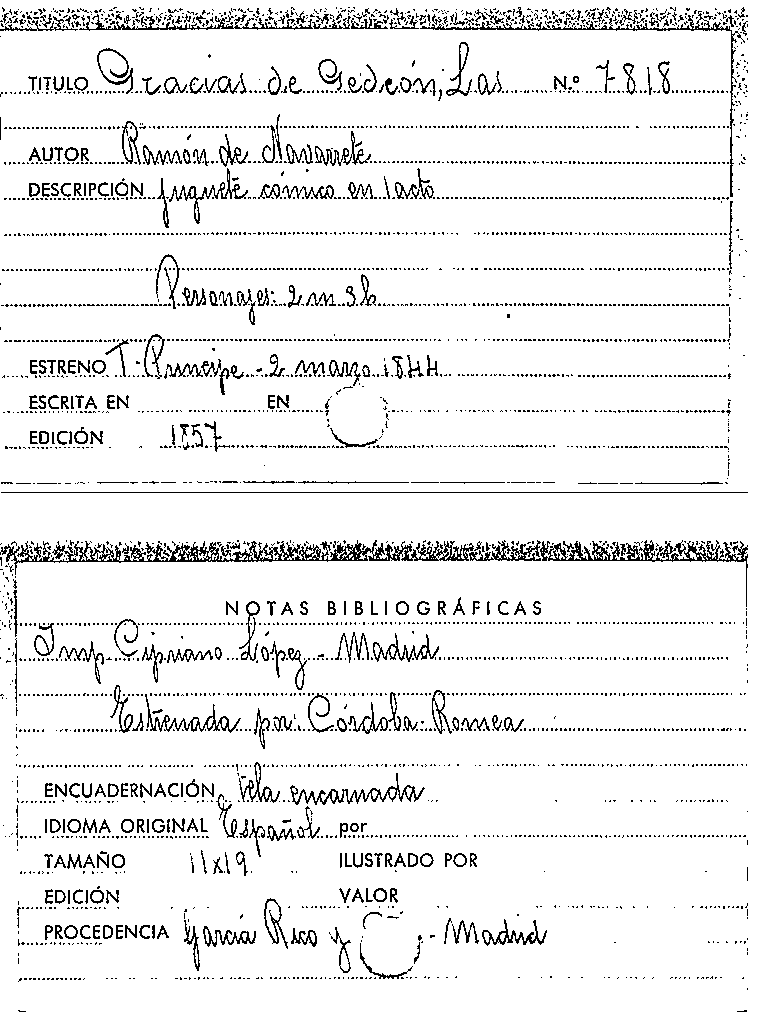 TITULO Gracias de Gedeón, Las N.º 7818
AUTOR Ramón de Navarrete
DESCRIPCIÓN Juguete cómico en 1 acto
Personajes: 2 m 3 h
ESTRENO T. Principe - 2 marzo 1844
ESCRITA EN EN
EDICIÓN 1857
NOTAS BIBLIOGRÁFICAS
Imp Cipriano López - Madrid
Estrenada por: Córdoba - Romea
ENCUADERNACIÓN Tela encarnada
IDIOMA ORIGINAL Español por
TAMAÑO 11x19 ILUSTRADO POR
EDICIÓN VALOR
PROCEDENCIA García Rico y - Madrid